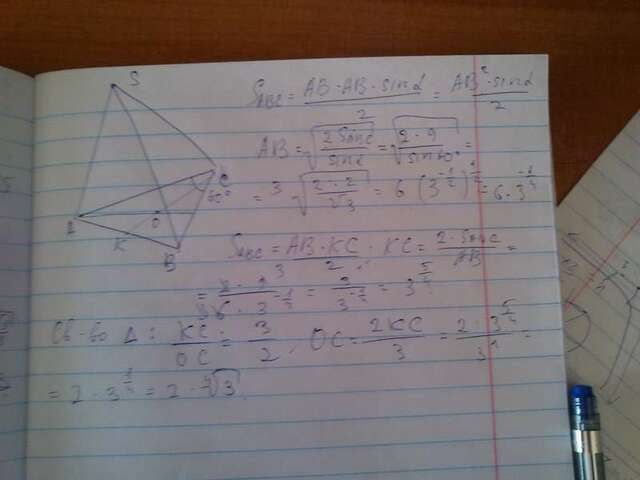 S
C
60°
A
O
K
B
S_ABC = AB · AB · sin α / 2 = AB² · sin α / 2
AB = √(2 S_ABC / sin α) = √(2 · 9 / sin 60°) =
= 3 √(2 · 2 / √3) = 6 (3^(-1/2))^(1/2) = 6 · 3^(-1/4)
S_ABC = AB · KC / 2 ; KC = 2 · S_ABC / AB =
= 2 · 9 / 6 · 3^(-1/4) = 3 / 3^(-1/4) = 3^(5/4)
Св-во Δ : KC / OC = 3 / 2 , OC = 2KC / 3 = 2 · 3^(5/4) / 3^1 =
= 2 · 3^(1/4) = 2 · ⁴√3